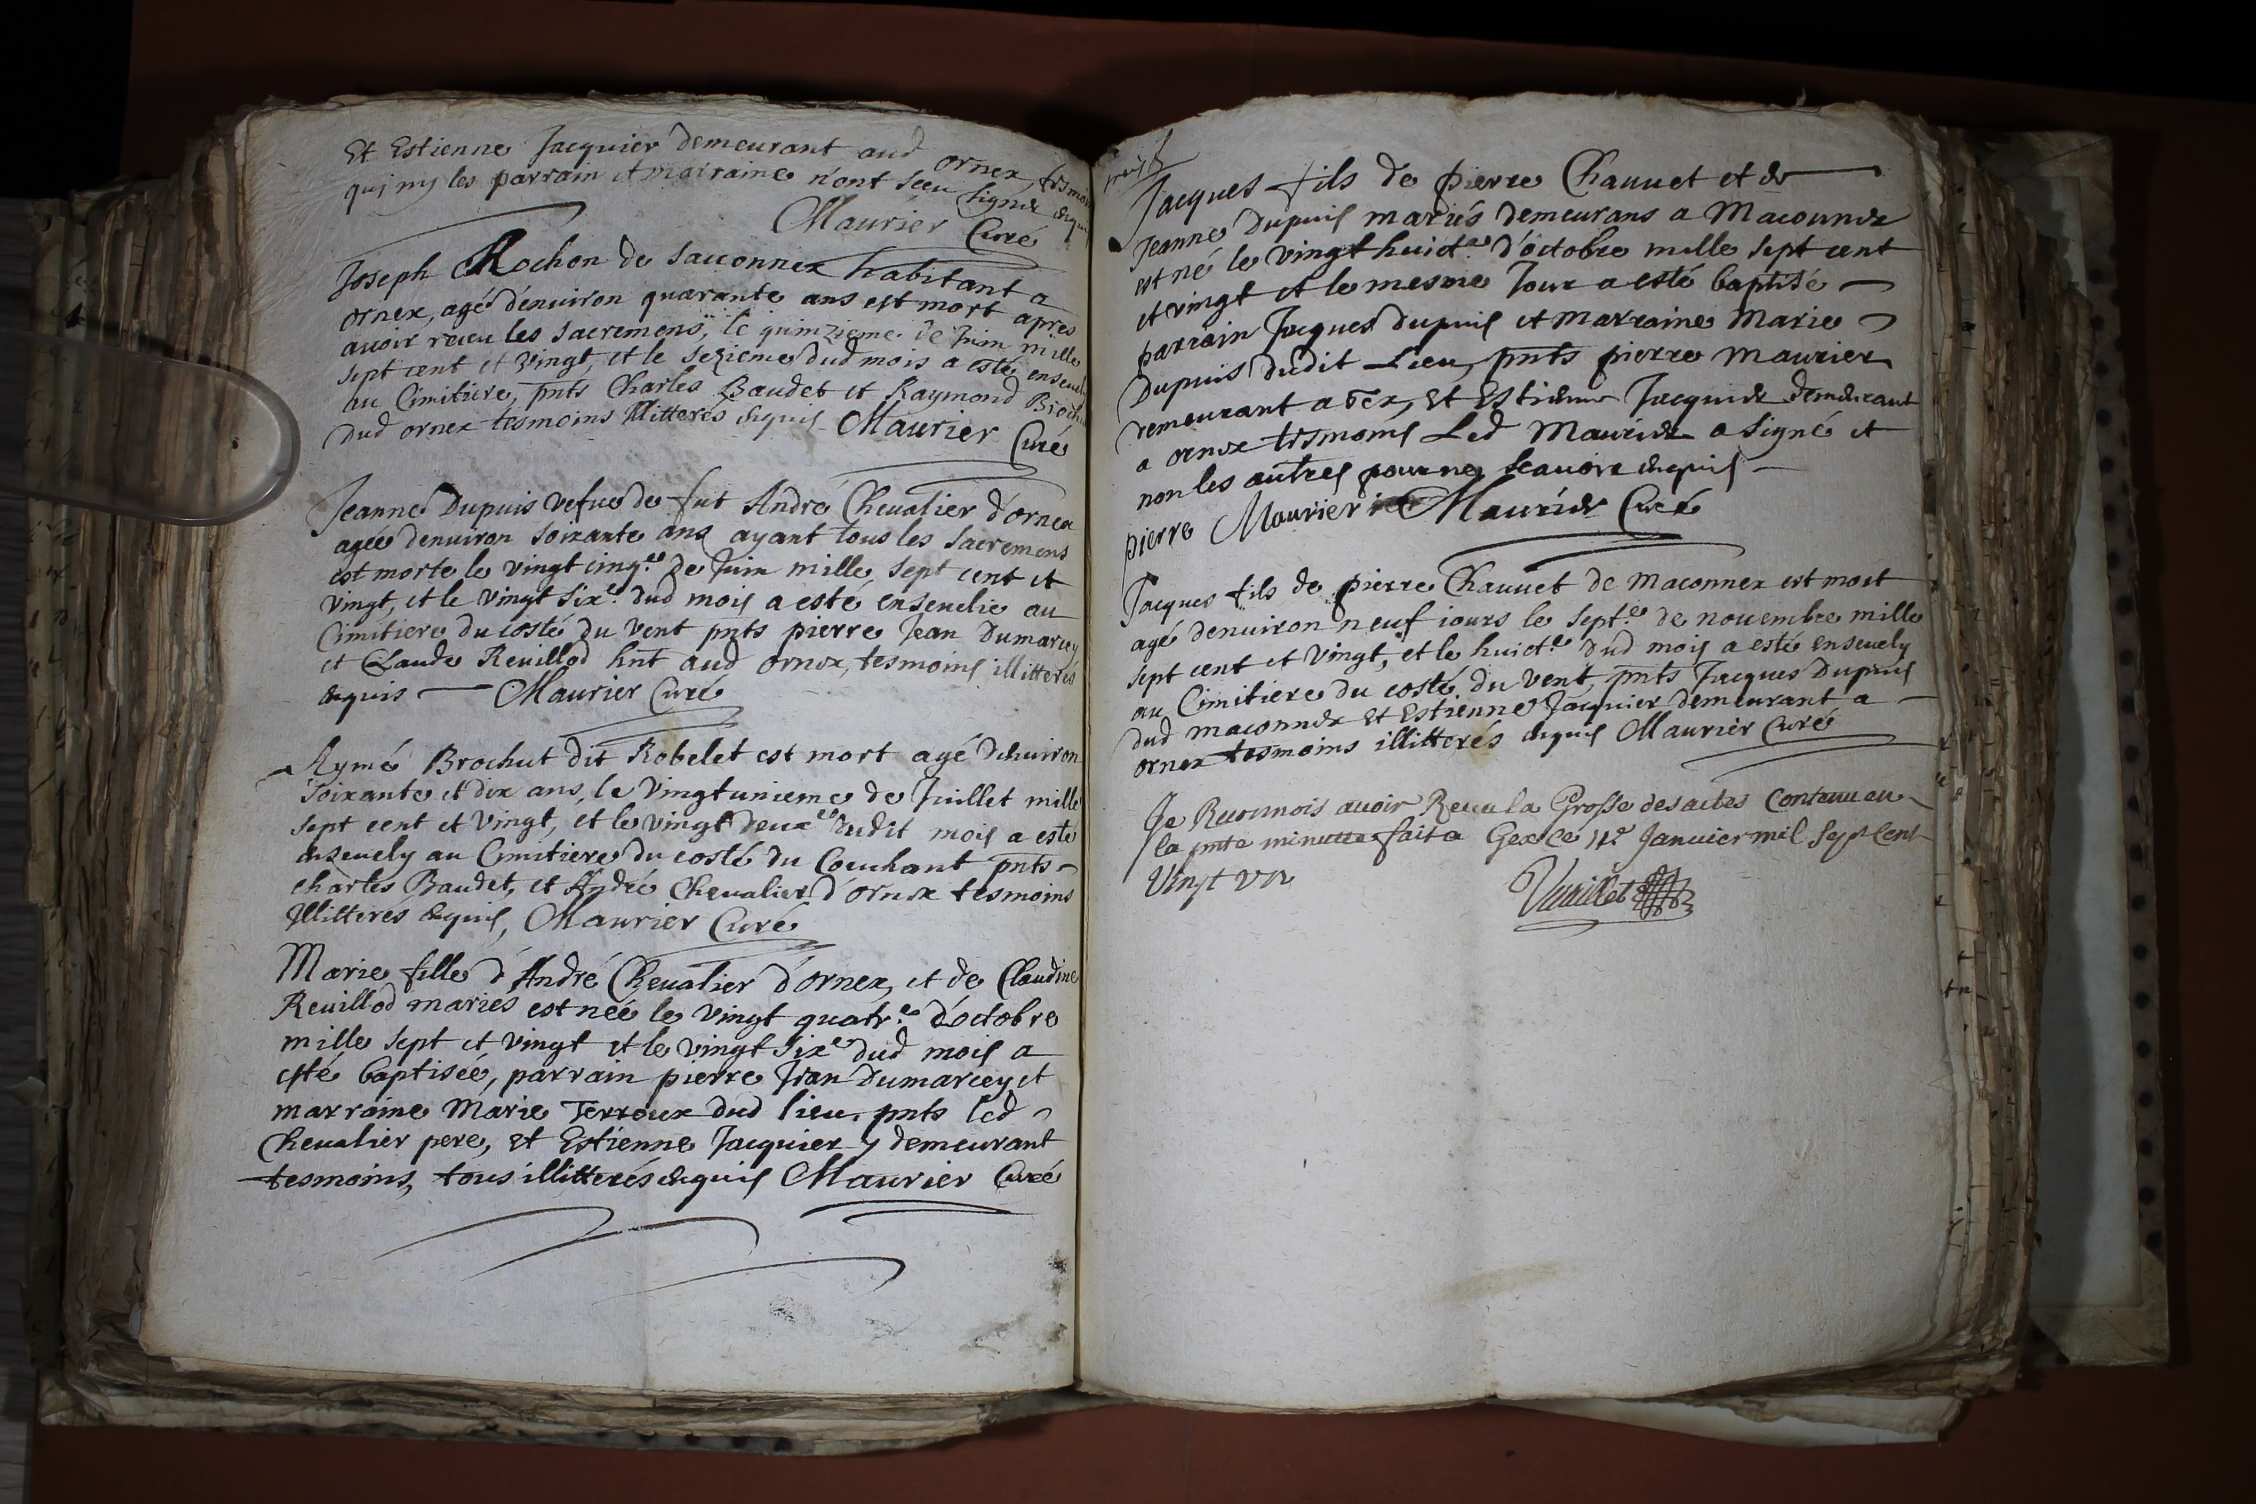 Et Estienne Jacquier demeurant aud ornex, tesmoins
quj ny les parrain et marraine n'ont sceu signer enquis
Maurier Curé
Joseph Rochon de sacconnex habitant a
ornex, agé d'enuiron quarante ans est mort apres
auoir receu les sacremens, le quinzieme de Juin mille
sept cent et vingt, et le sezieme dud mois a esté enseuely
au Cimitiere, pnts Charles Baudet et Raymond Brochut
dud ornex tesmoins illitterés enquis Maurier
Curé
Jeanne Dupuis vefue de fut André Cheualier d'ornex
agée denuiron soixante ans ayant tous les sacremens
est morte le vingt cinq.e de Juin mille, sept cent et
vingt, et le vingt six.e dud mois a esté enseuelie au
Cimitiere du costé du vent pnts pierre Jean Dumarcey
et Claude Reuillod hnt aud ornex, tesmoins illitterés
enquis Maurier Curé
Aymé Brochut dit Robelet est mort agé denuiron
soixante et dix ans, le vingtunieme de Juillet mille
sept cent et vingt, et le vingt deux.e dudit mois a esté
enseuely au Cimitiere du costé du Couchant pnts
charles Baudet, et André Cheualier d'ornex tesmoins
Jllitterés enquis, Maurier Curé
Marie fille d'André Cheualier d'ornex, et de Claudine
Reuillod mariés est née le vingt quatr.e d'octobre
mille sept et vingt et le vingt six.e dud mois a
esté baptisée, parrain pierre Jean Dumarcey et
marraine Marie Terroux dud lieu, pnts led
Cheualier pere, et Estienne Jacquier y demeurant
tesmoins, tous illitterés enquis Maurier Curé
Jacques fils de pierre Chauuet et de
Jeanne Dupuis mariés demeurans a Maconnex
est né le vingt huict.e d'octobre mille sept cent
et vingt et le mesme Jour a esté baptisé
parrain Jacques dupuis et marraine Marie
Dupuis dudit Lieu, pnts pierre Maurier
demeurant a Gex, et Estienne Jacquier demeurant
a ornex tesmoins Led Maurier a signé et
non les autres pour ne scauoir enquis
pierre Maurier Maurier Curé
Jacques fils de pierre Chauuet de maconnex est mort
agé denuiron neuf iours le sept.e de nouembre mille
sept cent et vingt, et le huict.e dud mois a esté enseuely
au Cimitiere du costé du vent, pnts Jacques Dupuis
dud maconnex et Estienne Jacquier demeurant a
ornex tesmoins illitterés enquis Maurier Curé
Je Reconnois auoir Receu la Grosse des actes Contenu en
la pnte minutte fait a Gex ce Januier mil sept Cent
vingt vn
Vuaillet